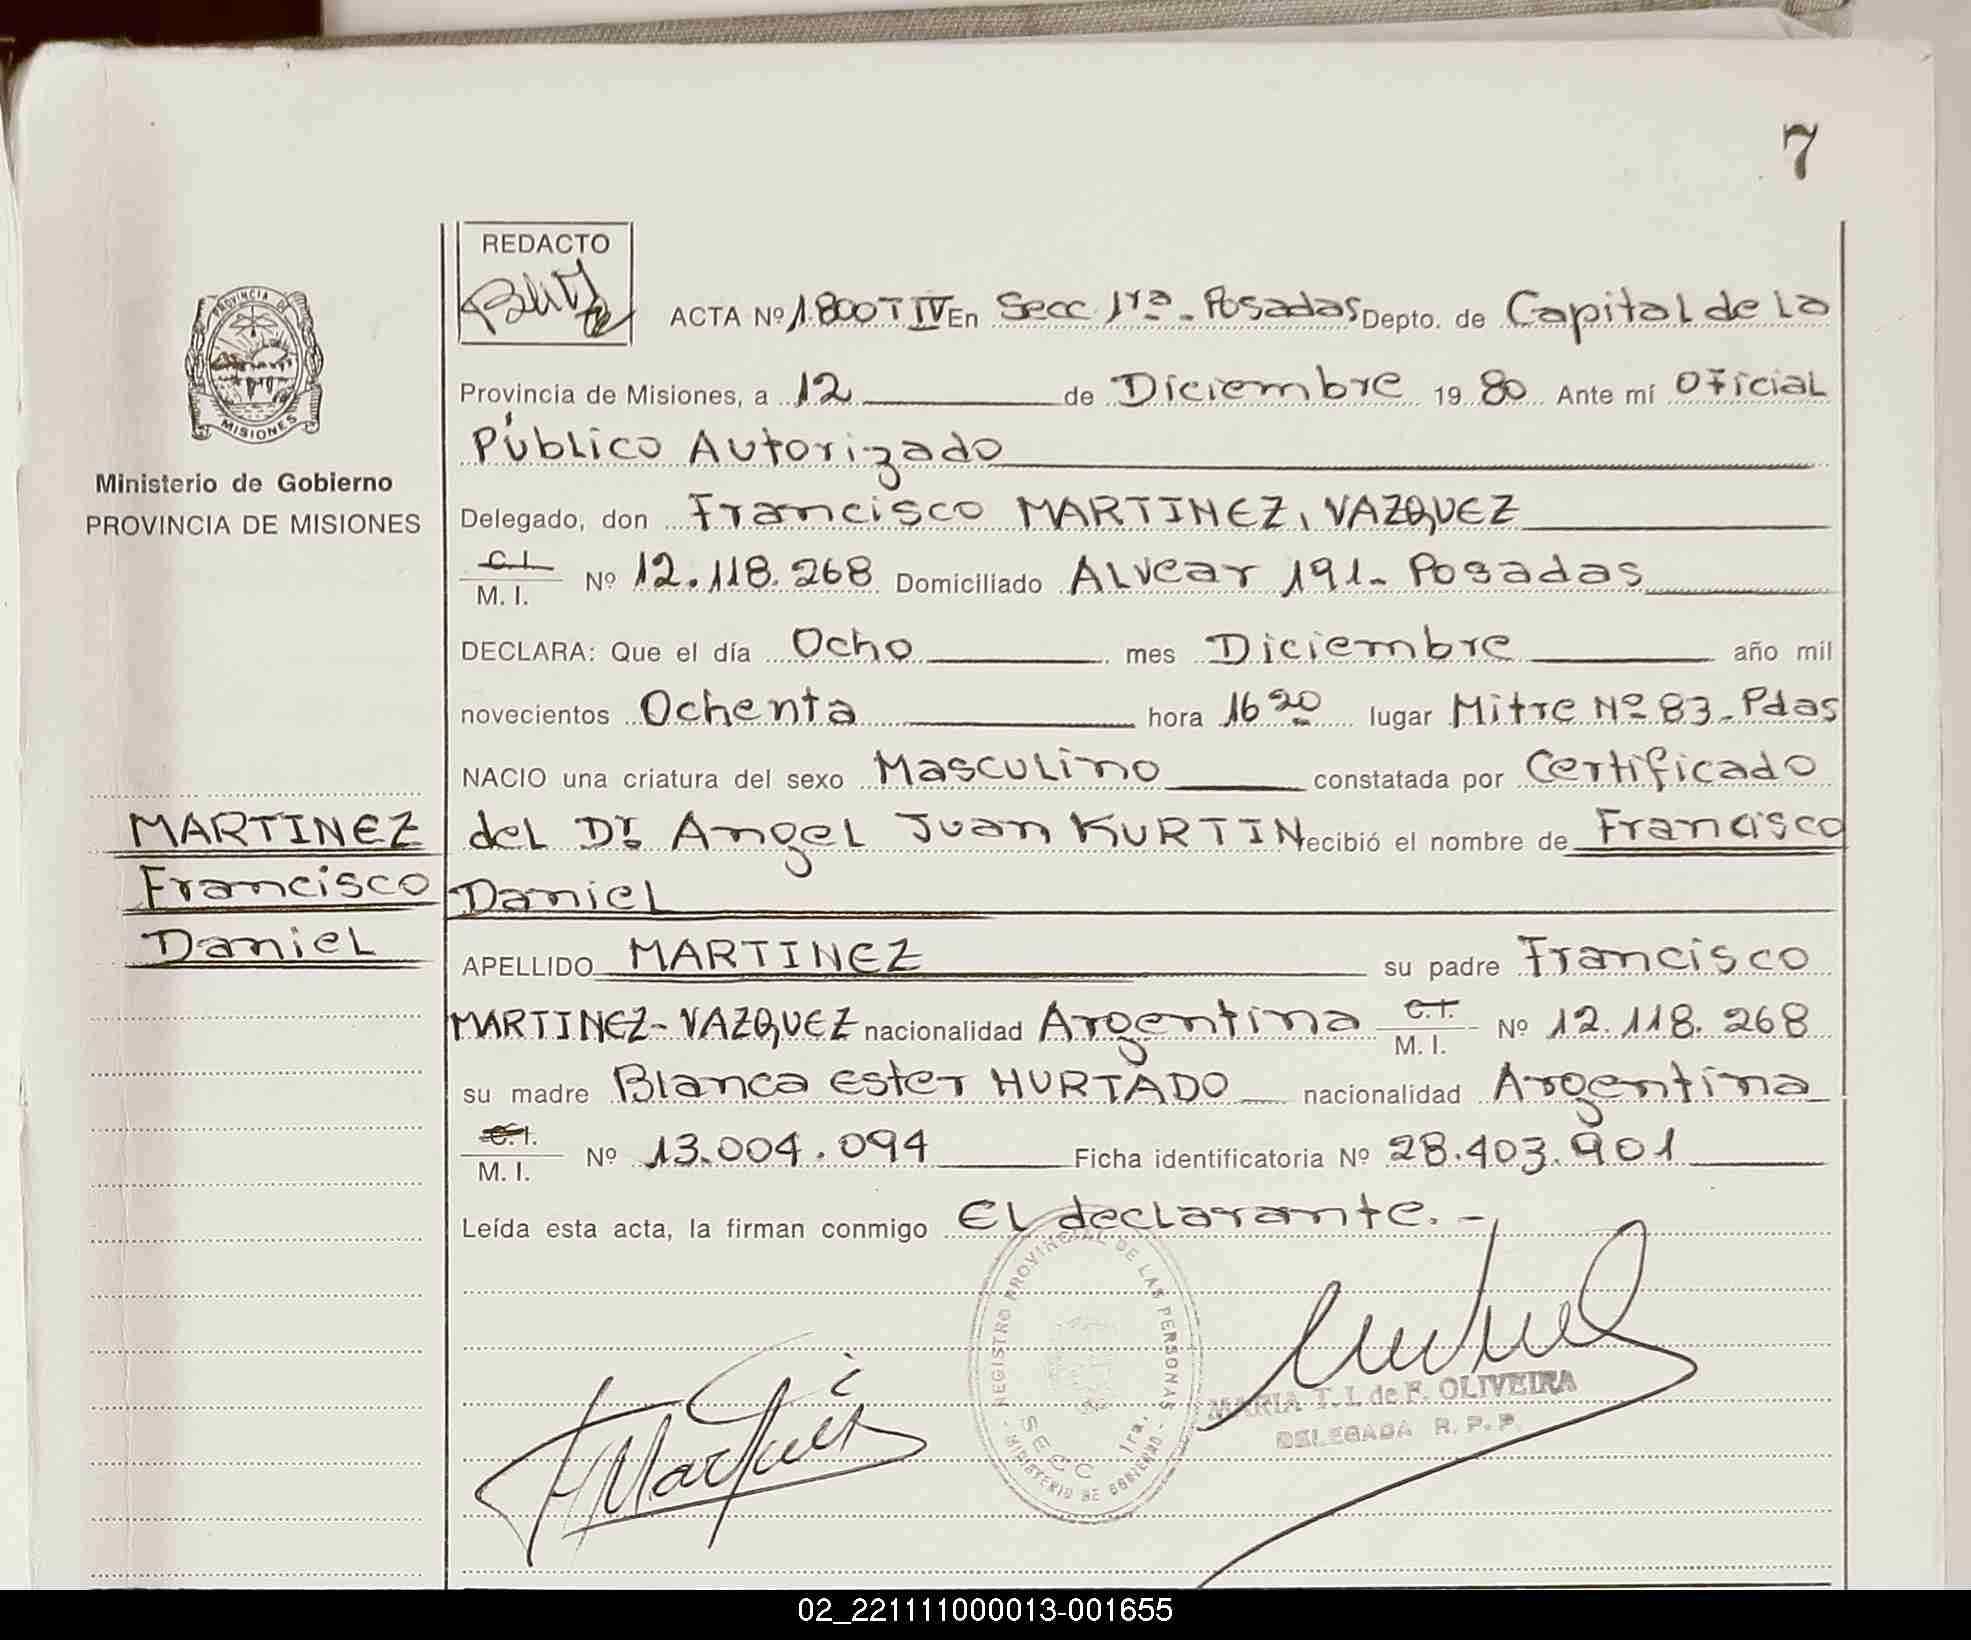 7
REDACTO
ACTA Nº 1.800 T IV En Secc 1ra - Posadas Depto. de Capital de la
Provincia de Misiones, a 12 de Diciembre 19 80 Ante mí Oficial
Público Autorizado
Delegado, don Francisco MARTINEZ, VAZQUEZ
C.I.
M. I. Nº 12.118.268 Domiciliado Alvear 191- Posadas
DECLARA: Que el día Ocho mes Diciembre año mil
novecientos Ochenta hora 16 20 lugar Mitre Nº 83 - Pdas
NACIO una criatura del sexo Masculino constatada por Certificado
del Dr. Angel Juan KURTIN ecibió el nombre de Francisco
Daniel
APELLIDO MARTINEZ su padre Francisco
MARTINEZ-VAZQUEZ nacionalidad Argentina C.I.
M. I. Nº 12.118.268
su madre Blanca Ester HURTADO nacionalidad Argentina
C.I.
M. I. Nº 13.004.094 Ficha identificatoria Nº 28.403.901
Leída esta acta, la firman conmigo El declarante.-
PROVINCIA DE
MISIONES
Ministerio de Gobierno
PROVINCIA DE MISIONES
MARTINEZ
Francisco
Daniel
REGISTRO PROVINCIAL DE LAS PERSONAS
SECC 1ra.
MINISTERIO DE GOBIERNO
MARIA T. I. de F. OLIVEIRA
DELEGADA R. P. P.
02_221111000013-001655